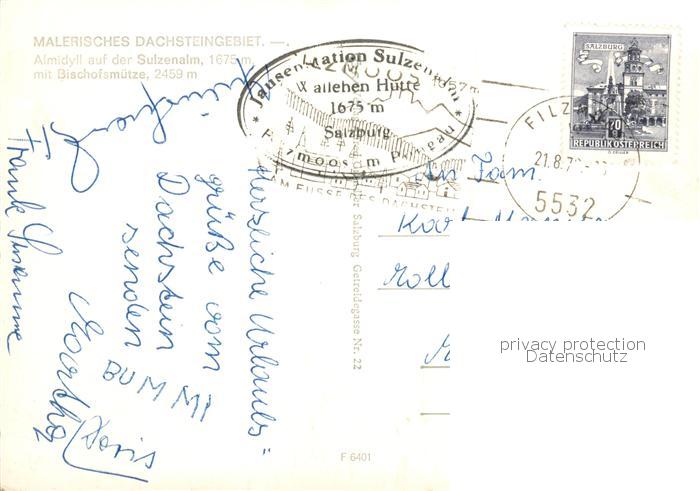 MALERISCHES DACHSTEINGEBIET. —.
Almidyll auf der Sulzenalm, 1675 m,
mit Bischofsmütze, 2459 m
Jausenstation Sulzenalm
Wallehen Hütte
1675 m
Salzburg
Filzmoos im Pongau
FILZMOOS 1057 m
AM FUSSE DES DACHSTEIN
FILZ
21.8.7
5532
SALZBURG
70
REPUBLIK ÖSTERREICH
Herzliche Urlaubs"
grüße vom
Dachstein
senden
BUMMI
Doris
Frank
An Fam.
Salzburg Getreidegasse Nr. 22
F 6401
privacy protection
Datenschutz